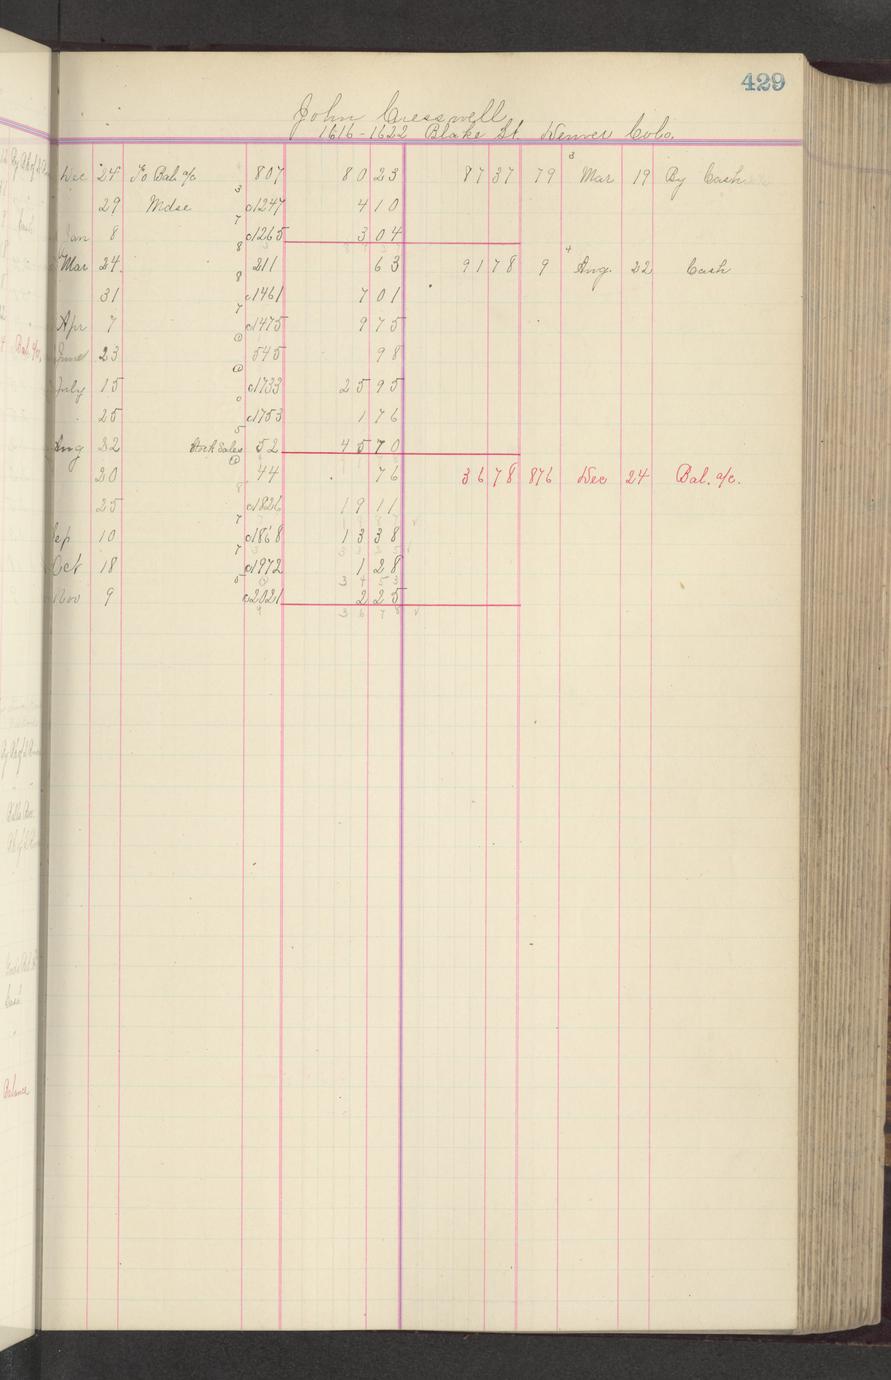 429
John Cresswell
1616-1622 Blake St. Denver Colo.
Dec 24 To Bal. a/c 807 80 23 87 37 79 3 Mar 19 By Cash
29 Mdse 3 c1247 4 10
Jan 8 7 c1265 3 04
Mar 24. 8 211 63 91 78 9 4 Aug. 22 Cash
31 8 c1461 7 01
Apr 7 7 c1475 9 75
June 23 @ 545 98
July 15 @ c1733 25 95
25 0 c1753 1 76
Aug 22 Stock Sales 5 52 45 70
20 @ 44 76 36 78 876 Dec 24 Bal. a/c.
25 8 c1826 19 11
Sep 10 7 c1868 13 38
Oct 18 7 c1972 1 28
34 53
Nov 9 5 c2021 2 25
36 78 √
Balance